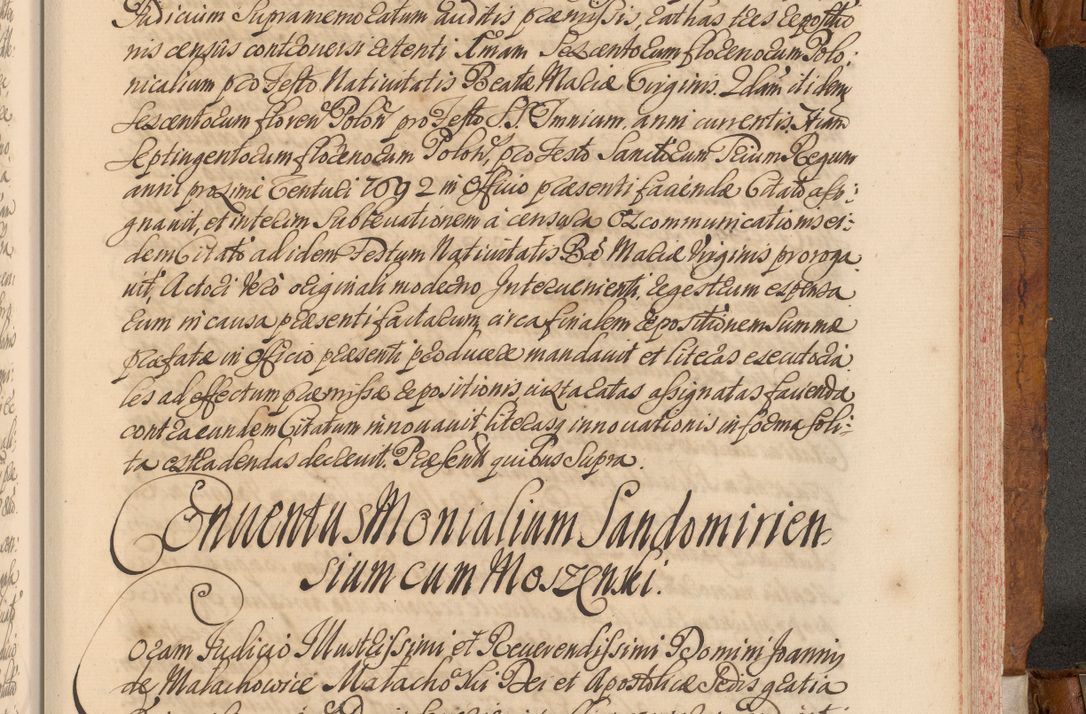 Judicium Supramemoratum auditis præmissis, ratas tres repositio
nis census controversi retenti 1mam Sescentorum florenorum Polo:
nicalium pro Festo Nativitatis Beatæ Mariæ Virginis. 2dam itidem
sescentorum floren Polon pro Festo S.S. Omnium, anni currentis, 3tiam
septingentorum florenorum Polon, pro Festo Sanctorum Trium Regum
anni proxime venturi 1692 in Officio præsenti faciendæ Citato assi:
gnavit, et interim sublevationem à censura Excommunicationis ei:
dem Citato ad idem Festum Nativitatis Bæ Mariæ Virginis proroga
vit, Actori verò originali moderno Intervenienti, regestrum expensa
rum in causa præsenti factarum, circa finalem repositionem summæ
præfatæ in Officio præsenti producere mandavit et literas executoria
les ad effectum præmissæ repositionis, iuxta ratas assignatas faciendæ
contra eundem Citatum innovavit, literasq innovationis in forma soli:
ta extradendas decrevit. Præsentibus quibus supra.
Conventus Monialium Sandomirien
sium cum Moszenski.
Coram Judicio Illustrissimi et Reverendissimi Domini Joannis
de Małachowice Małachoski Dei et Apostolicæ Sedis gratia